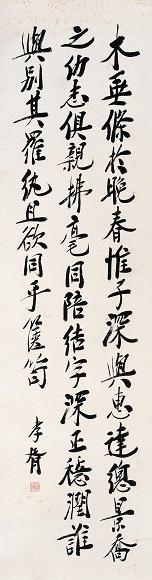 木垂條於晚春惟子深與惠達總景喬
之幼志俱親拂毫同陪結字深正穩潤誰
與別其羅紈且欲同乎篋笥
李膺